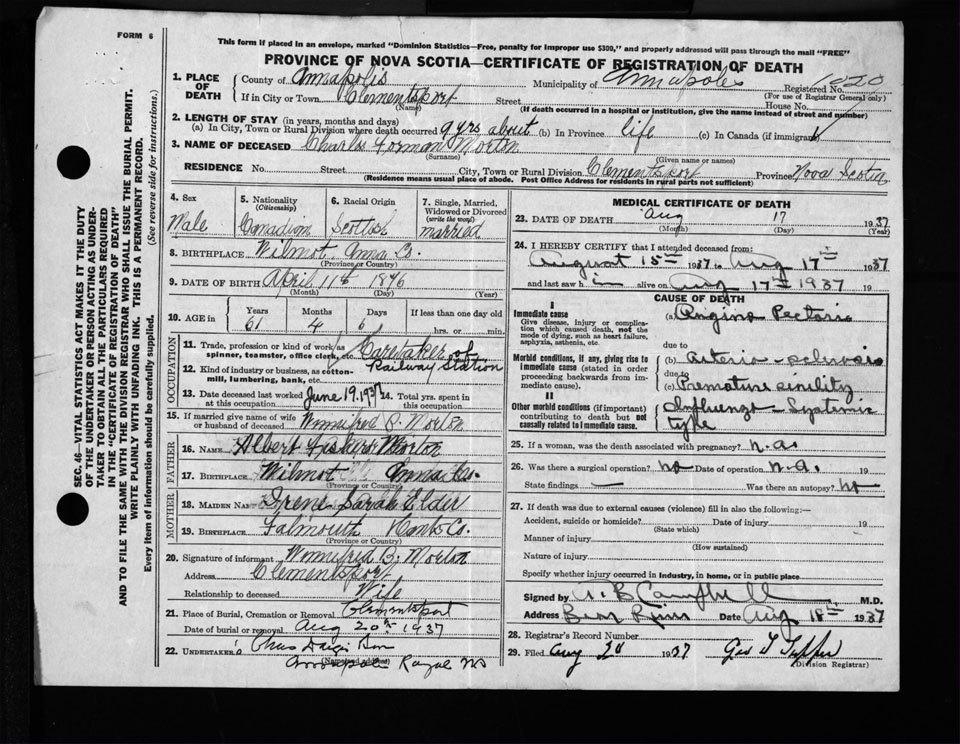 FORM 6
This form if placed in an envelope, marked "Dominion Statistics—Free, penalty for improper use $300," and properly addressed will pass through the mail "FREE"
PROVINCE OF NOVA SCOTIA—CERTIFICATE OF REGISTRATION OF DEATH
1. PLACE OF DEATH County of Annapolis Municipality of Annapolis Registered No.
(For use of Registrar General only)
If in City or Town Clementsport Street House No.
(Name) (If death occurred in a hospital or institution, give the name instead of street and number)
2. LENGTH OF STAY (in years, months and days)
(a) In City, Town or Rural Division where death occurred 9 yrs about (b) In Province life (c) In Canada (if immigrant)
3. NAME OF DECEASED Charles Forman Morton
(Surname) (Given name or names)
RESIDENCE No. Street City, Town or Rural Division Clementsport Province Nova Scotia
(Residence means usual place of abode. Post Office Address for residents in rural parts not sufficient)
SEC. 46—VITAL STATISTICS ACT MAKES IT THE DUTY
OF THE UNDERTAKER OR PERSON ACTING AS UNDER-
TAKER TO OBTAIN ALL THE PARTICULARS REQUIRED
IN THE "CERTIFICATE OF REGISTRATION OF DEATH"
AND TO FILE THE SAME WITH THE DIVISION REGISTRAR WHO SHALL ISSUE THE BURIAL PERMIT.
WRITE PLAINLY WITH UNFADING INK. THIS IS A PERMANENT RECORD.
Every item of information should be carefully supplied. (See reverse side for instructions.)
4. Sex
Male
5. Nationality
(Citizenship)
Canadian
6. Racial Origin
Scottish
7. Single, Married,
Widowed or Divorced
(write the word)
married
8. BIRTHPLACE Wilmot, Anna Co.
(Province or Country)
9. DATE OF BIRTH April 11th 1876
(Month) (Day) (Year)
10. AGE in Years Months Days If less than one day old
61 4 6 hrs. or min.
OCCUPATION
11. Trade, profession or kind of work as
spinner, teamster, office clerk, etc. Caretaker of
12. Kind of industry or business, as cotton-
mill, lumbering, bank, etc. Railway Station
13. Date deceased last worked
at this occupation June 19, 1937
14. Total yrs. spent in
this occupation
15. If married give name of wife
or husband of deceased Winnifred B. Morton
FATHER
16. NAME Albert Morton
17. BIRTHPLACE Wilmot Anna Co.
(Province or Country)
MOTHER
18. MAIDEN NAME Irene Sarah Elder
19. BIRTHPLACE Falmouth Hants Co.
(Province or Country)
20. Signature of informant Winnifred B. Morton
Address Clementsport
Relationship to deceased Wife
21. Place of Burial, Cremation or Removal Clementsport
Date of burial or removal Aug 20th 1937
22. UNDERTAKER'S
(Name and address)
Annapolis Royal NS
MEDICAL CERTIFICATE OF DEATH
23. DATE OF DEATH Aug 17 1937
(Month) (Day) (Year)
24. I HEREBY CERTIFY that I attended deceased from:
August 15th 1937 to Aug 17th 1937
and last saw him alive on Aug 17th 1937 19
CAUSE OF DEATH
I
Immediate cause
Give disease, injury or complica-
tion which caused death, not the
mode of dying, such as heart failure,
asphyxia, asthenia, etc.
(a) Angina Pectoris
due to
Morbid conditions, if any, giving rise to
immediate cause (stated in order
proceeding backwards from im-
mediate cause).
(b) Arterio-sclerosis
due to
(c) Premature senility
II
Other morbid conditions (if important)
contributing to death but not
causally related to immediate cause.
Influenza - Systemic
type
25. If a woman, was the death associated with pregnancy? n.a.
26. Was there a surgical operation? no Date of operation n.a. 19
State findings — Was there an autopsy? no
27. If death was due to external causes (violence) fill in also the following:—
Accident, suicide or homicide? Date of injury 19
(State which)
Manner of injury
(How sustained)
Nature of injury
Specify whether injury occurred in industry, in home, or in public place
Signed by B Campbell M.D.
Address Bear River Date Aug 18th 1937
28. Registrar's Record Number
29. Filed Aug 1937 Geo Tupper
(Division Registrar)